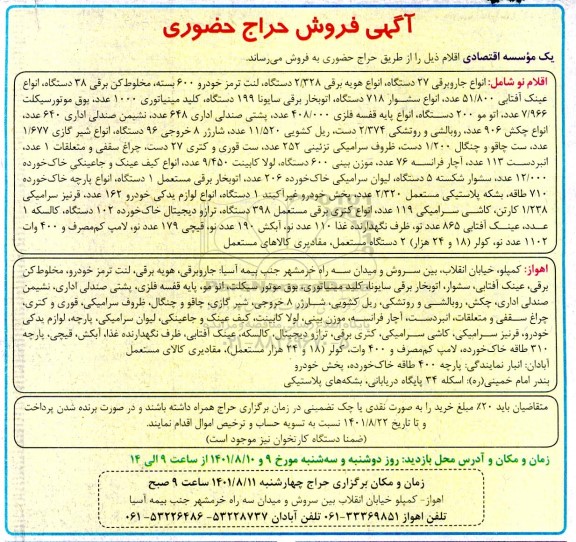 آگهی فروش حراج حضوری
یک مؤسسه اقتصادی اقلام ذیل را از طریق حراج حضوری به فروش می‌رساند.
اقلام نو شامل: انواع جاروبرقی ۲۷ دستگاه، انواع هویه برقی ۲/۳۲۸ دستگاه، لنت ترمز خودرو ۶۰۰ بسته، مخلوط‌کن برقی ۳۸ دستگاه، انواع
عینک آفتابی ۵۱/۸۰۰ عدد، انواع سشوار ۷۱۸ دستگاه، اتوبخار برقی سایونا ۱۹۹ دستگاه، کلید مینیاتوری ۱۰۰۰ عدد، بوق موتورسیکلت
۷/۹۶۶ عدد، اتو مو ۲۰۰ دستگاه، انواع پایه قفسه فلزی ۴۰۸/۰۰۰ عدد، پشتی صندلی اداری ۶۴۸ عدد، نشیمن صندلی اداری ۶۴۰ عدد،
انواع چکش ۹۰۶ عدد، روبالشی و روتشکی ۲/۳۷۴ دست، ریل کشویی ۱۱/۵۲۰ عدد، شارژر ۸ خروجی ۹۶ دستگاه، انواع شیر گازی ۱/۶۷۷
عدد، ست چاقو و چنگال ۱/۲۰۰ دست، ظروف سرامیکی تزئینی ۲۵۲ عدد، ست قوری و کتری ۲۷ دست، چراغ سقفی و متعلقات ۱ عدد،
انبردست ۱۱۳ عدد، آچار فرانسه ۷۶ عدد، موزن بینی ۶۰۰ دستگاه، لولا کابینت ۹/۴۵۰ عدد، انواع کیف عینک و جاعینکی خاک‌خورده
۱۲/۰۰۰ عدد، سشوار شکسته ۵ دستگاه، لیوان سرامیکی خاک‌خورده ۲۰۶ عدد، اتوبخار برقی مستعمل ۱ دستگاه، انواع پارچه خاک‌خورده
۷۱۰ طاقه، بشکه پلاستیکی مستعمل ۲/۳۲۰ عدد، پخش خودرو غیرآکبند ۱ دستگاه، انواع لوازم یدکی خودرو ۱۶۲ عدد، قرنیز سرامیکی
۱/۲۳۸ کارتن، کاشی سرامیکی ۱۱۹ عدد، انواع کتری برقی مستعمل ۳۹۸ دستگاه، ترازو دیجیتال خاک‌خورده ۱۰۲ دستگاه، کالسکه ۱
عدد، عینک آفتابی ۸۶۵ عدد نو، ظرف نگهدارنده غذا ۱۱۰ عدد نو، آبکش ۱۹۰ عدد نو، قیچی ۱۷۹ عدد نو، لامپ کم‌مصرف و ۴۰۰ وات
۱۱۰۲ عدد نو، کولر (۱۸ و ۲۴ هزار) ۲ دستگاه مستعمل، مقادیری کالاهای مستعمل
اهواز: کمپلو، خیابان انقلاب، بین سروش و میدان سه راه خرمشهر جنب بیمه آسیا: جاروبرقی، هویه برقی، لنت ترمز خودرو، مخلوط‌کن
برقی، عینک آفتابی، سشوار، اتوبخار برقی سایونا، کلید مینیاتوری، بوق موتورسیکلت، اتو مو، پایه قفسه فلزی، پشتی صندلی اداری، نشیمن
صندلی اداری، چکش، روبالشی و روتشکی، ریل کشویی، شارژر ۸ خروجی، شیر گازی، چاقو و چنگال، ظروف سرامیکی، قوری و کتری،
چراغ سقفی و متعلقات، انبردست، آچار فرانسه، موزن بینی، لولا کابینت، کیف عینک و جاعینکی، لیوان سرامیکی، پارچه، لوازم یدکی
خودرو، قرنیز سرامیکی، کاشی سرامیکی، کتری برقی، ترازو دیجیتال، کالسکه، عینک آفتابی، ظرف نگهدارنده غذا، آبکش، قیچی، پارچه
۳۱۰ طاقه خاک‌خورده، لامپ کم‌مصرف و ۴۰۰ وات، کولر (۱۸ و ۲۴ هزار مستعمل)، مقادیری کالای مستعمل
آبادان: انبار نمایندگی: پارچه ۴۰۰ طاقه خاک‌خورده، پخش خودرو
بندر امام خمینی(ره): اسکله ۳۴ پایگاه دریابانی، بشکه‌های پلاستیکی
متقاضیان باید ۲۰٪ مبلغ خرید را به صورت نقدی یا چک تضمینی در زمان برگزاری حراج همراه داشته باشند و در صورت برنده شدن پرداخت
و تا تاریخ ۱۴۰۱/۸/۲۲ نسبت به تسویه حساب و ترخیص اموال اقدام نمایند.
(ضمنا دستگاه کارتخوان نیز موجود است)
زمان و مکان و آدرس محل بازدید: روز دوشنبه و سه‌شنبه مورخ ۹ و ۱۴۰۱/۸/۱۰ از ساعت ۹ الی ۱۴
زمان و مکان برگزاری حراج چهارشنبه ۱۴۰۱/۸/۱۱ ساعت ۹ صبح
اهواز- کمپلو خیابان انقلاب بین سروش و میدان سه راه خرمشهر جنب بیمه آسیا
تلفن اهواز ۳۳۳۶۹۸۵۱-۰۶۱ تلفن آبادان ۵۳۲۲۸۷۳۷- ۵۳۲۲۶۴۸۶-۰۶۱